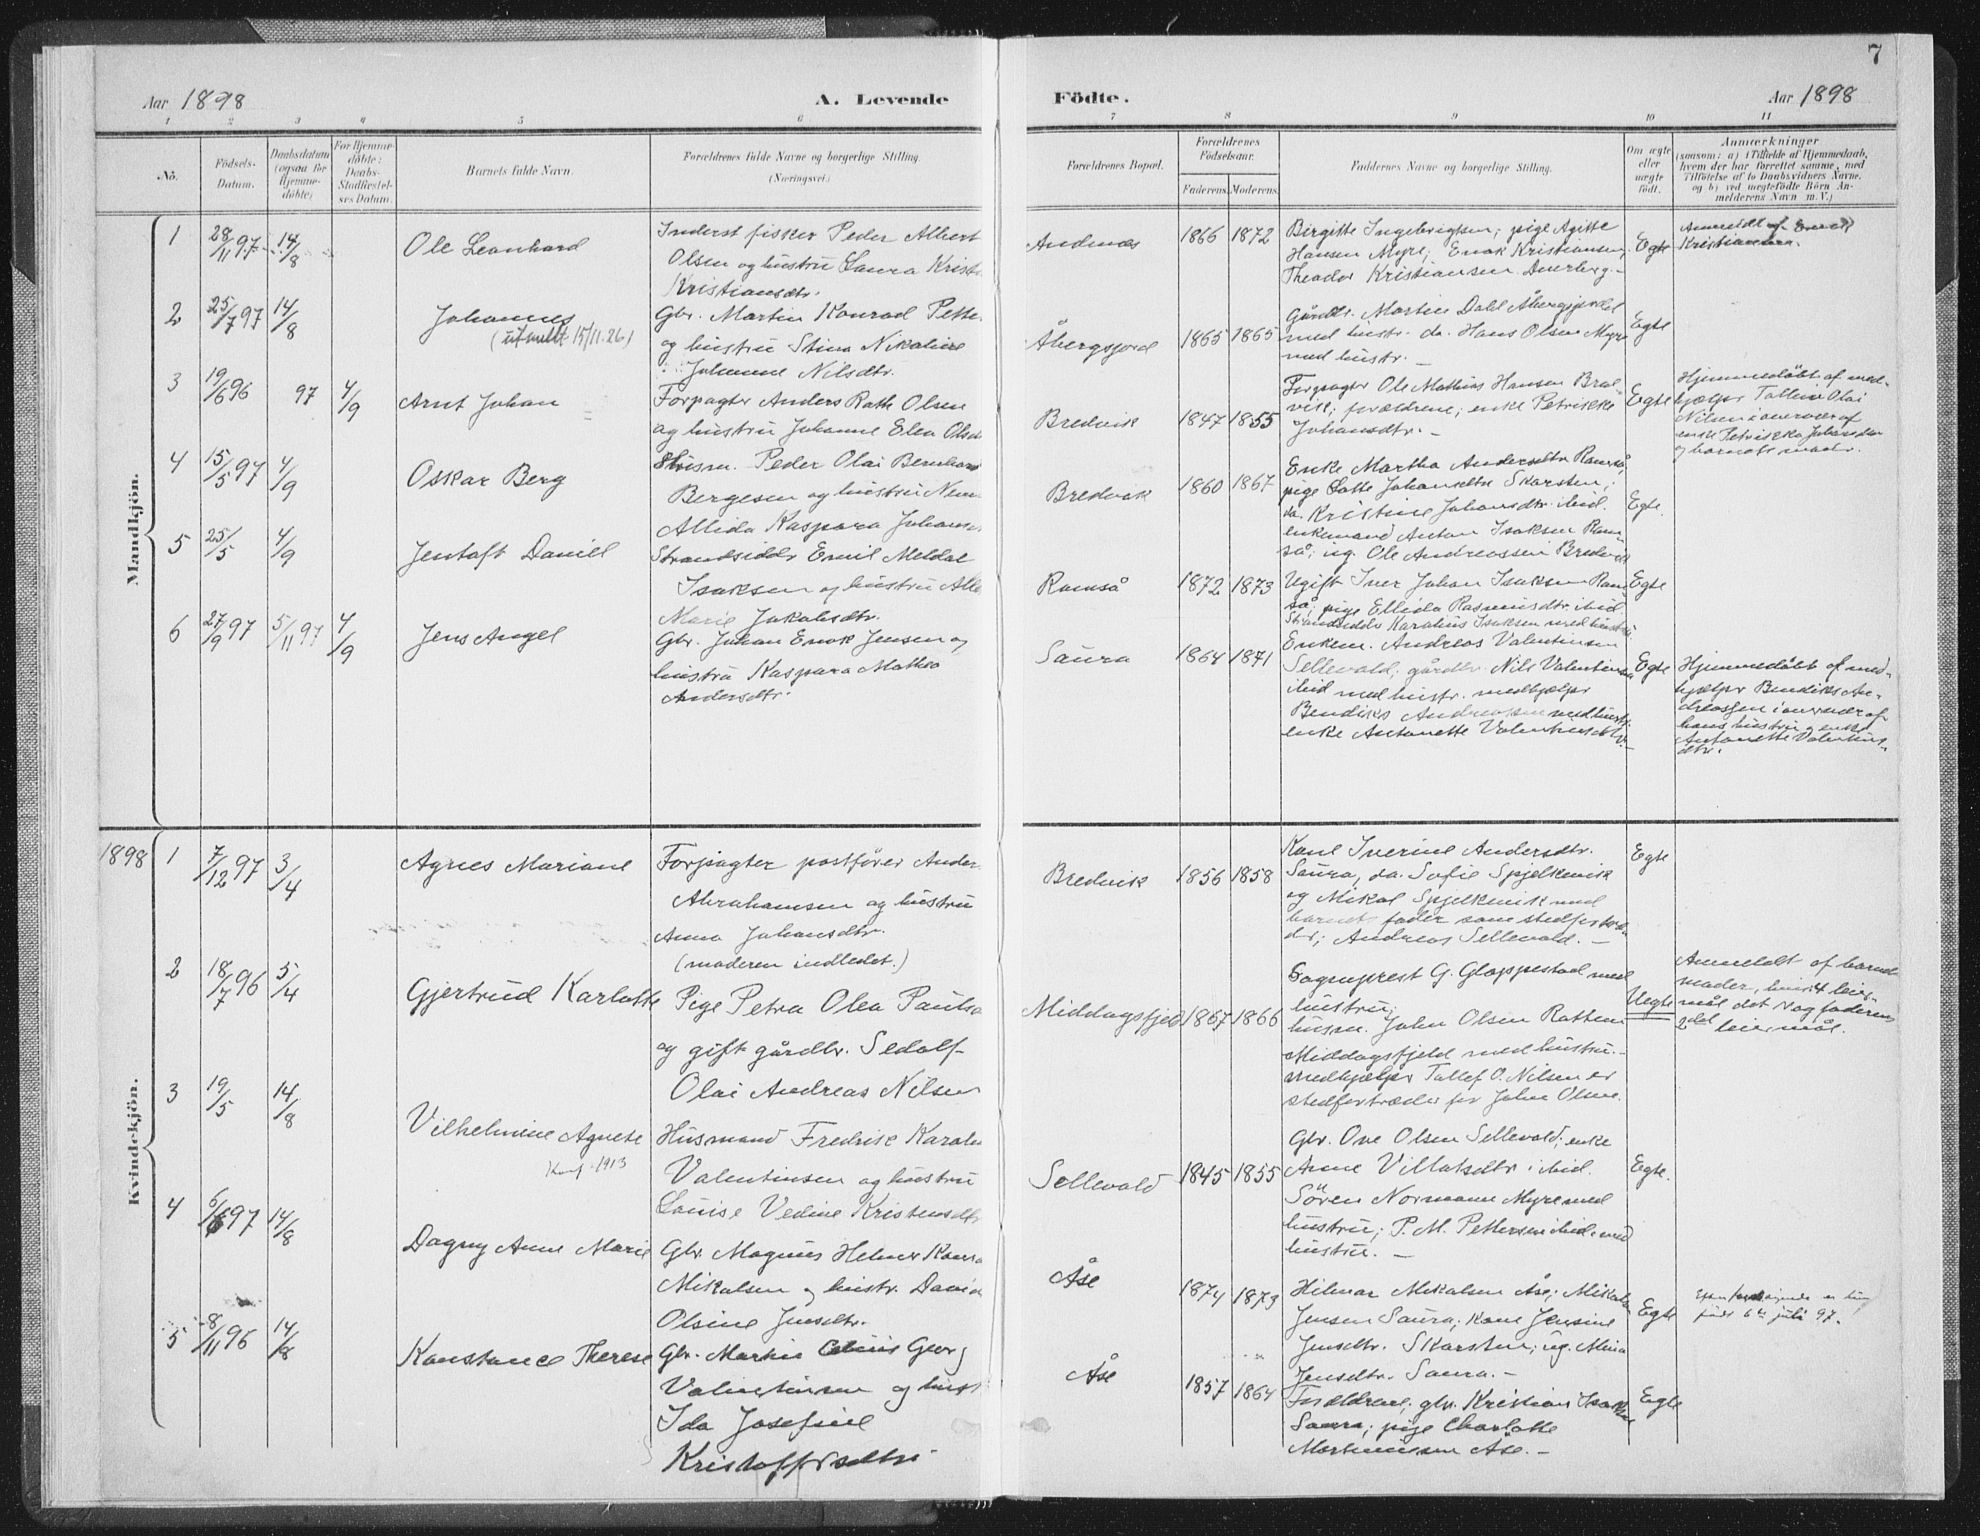 7
Aar 1898
A. Levende
Födte.
Aar 1898
1 2 3 4 5 6 7 8 9 10 11
No.
Födsels-
Datum.
Daabsdatum
(ogsaa for
Hjemme-
döbte)
For Hjemme-
döbte:
Daabs-
Stadfæstel-
ses Datum.
Barnets fulde Navn.
Forældrenes fulde Navne og borgerlige Stilling.
(Næringsvei.)
Forældrenes Bopæl.
Forældrenes
Födselsaar.
Faderens. Moderens.
Faddernes Navne og borgerlige Stilling.
Om ægte
eller
uægte
födt.
Anmærkninger
(saasom: a) i Tilfælde af Hjemmedaab,
hvem der har forrettet samme, med
Tilföielse af to Daabsvidners Navne,
og b) ved uægtefödte Börn An-
melderens Navn m. V.)
Mandkjön.
1 28/11 97 14/8
Ole Leonhard
Inderst fisker Peder Albert
Olsen og hustru Laura Krist
Kristiansdtr.
Andenæs
1866 1872
Birgitte Ingebrigtsen; pige Agitte
Hansen Myre; Enok Kristiansen,
Theodor Kristiansen
Egte
Anmeldt af
Kristiansen.
2 25/7 97 14/8
Johannes
(utmeldt 15/11.26)
Gbr. Martin Konrad Pette
og hustru Stina Nikoline
Johanne Nilsdtr.
Åbergsjord
1865 1865
Gårdbr. Martin Dahl Åbergsjordet
med hustr. do. Hans Olsen Myre
med hustr. —
Egte
3 19/6 96 97 4/9
Arnt Johan
Forpagter Anders Rath Olsen
og hustru Johanne Elen Olsd
Bredvik
1847 1855
Forpagter Ole Mathias Hansen Bred-
vik; forældrene; enke Petrikke
Johansdtr. —
Egte
Hjemmedöbt af med-
hjælper Tollew Olai
Nilsen i overvær af
enke Petrikka Johansdtr
og barnets moder.
4 15/5 97 4/9
Osskar Berg
Husm. Peder Olai Bernhard
Bergesen og hustru
Allida Kaspara Johans
Bredvik
1860 1867
Enke Martha Andersdtr Ramså,
pige Lotte Johansdtr Skarsten;
do. Kristine Johansdtr. ibid.
enkemand Anton Isaksen Ram-
så; ug. Ole Andreassen Bredvik
Egte.
5 25/5 4/9
Jentoft Daniel
Strandsidder Emil Meldal
Isaksen og hustru
Marie Jakobsdtr.
Ramså
1872 1873
Ugift Iver Johan Isaksen Ram
så; pige Ellida Rasmusdtr. ibid
Strandsidder Karolius Isaksen med hustru
Egte
6 27/9 97 5/11 97 4/9
Jens Angel
Gbr. Johan Enok Jensen og
hustru Kaspara Mathea
Andersdtr.
Saura
1864 1871
Enkem. Andreas Valentinsen
Sellevold; gårdbr. Nils Valentinsen
ibid med hustr. medhjælper
Bendiks Andreassen med hustr.
enke Antonette Valentinsdtr. —
Egte
Hjemmedöbt af med-
hjælper Bendiks An-
dreassen i overvær af
hans hustru og enke
Antonette Valentins-
dtr.
Kvindekjön.
1898 1 7/12 97 3/4
Agnes Mariane
Forpagter postförer Ander
Abrahamsen og hustru
Anna Johansdtr.
(moderen indledet.)
Bredvik
1856 1858
Kone Iverine Andersdtr.
Saura, do. Sofie Spjelkevik
og Mikal Spjelkevik med
barnets fader som stedfortræ-
der; Andreas Sellevold. —
Egte
2 18/7 96 5/4
Gjertrud Karlotte
Pige Petra Olea Pauls
og gift gårdbr. Sedolf
Olai Andreas Nilsen
Middagsfjeld
1867 1866
Sogneprest G. Gloppestad med
hustru;
husm. John Olsen Rottem
Middagsfjeld med hustru. —
medhjælper Tollef O. Nilsen er
stedfortræder for John Olsen.
Uegte
Anmeldt af barnets
moder, hvis leier-
mål det var og faderens
2det leiermål.
3 19/5 14/8
Vilhelmine Agnete
Konf. 1913
Husmand Fredrik
Valentinsen og hustru
Louise Vedine Kristensdtr
Sellevold
1845 1855
Gbr. Ove Olsen Sellevold; enke
Anne Villatsdtr. ibid.
Sören Normann Myre med
hustru; P. M. Pettersen ibid. med
hustru. —
Egte.
4 6/6 97 14/8
Dagny Anne Marie
Gbr. Magnus Helmer
Mikalsen og hustr.
Olsine Jensdtr.
Åse
1874 1873
Hilmar Mikalsen Åse; Mikal
Jensen Saura; Kone Jensine
Jensdtr. Skarsten; ug. Mina
Jensdtr. Saura. —
Egte
er hun
födt 6te juli 97.
5 8/11 96 14/8
Konstance Therese
Gbr. Martin Georg
Valentinsen og hust
Ida Josefine
Kristoffersdtr.
Åse
1857 1864
Forældrene; gbr. Kristian Isaksen
Saura; pige Charlotte
Martinussen Åse. —
Egte